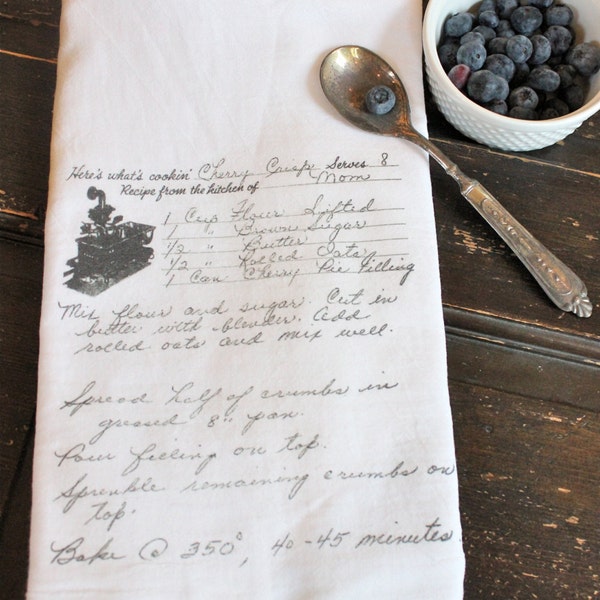 Here's what's cookin' Cherry Crisp Serves 8
Recipe from the kitchen of Mom
1 Cup Flour Sifted
1 " Brown Sugar
1/2 " Butter
1/2 " Rolled Oats
1 Can Cherry Pie Filling
Mix flour and sugar. Cut in
butter with blender. Add
rolled oats and mix well.
Spread half of crumbs in
greased 8" pan.
Pour filling on top.
Sprinkle remaining crumbs on
top.
Bake @ 350°, 40-45 minutes.